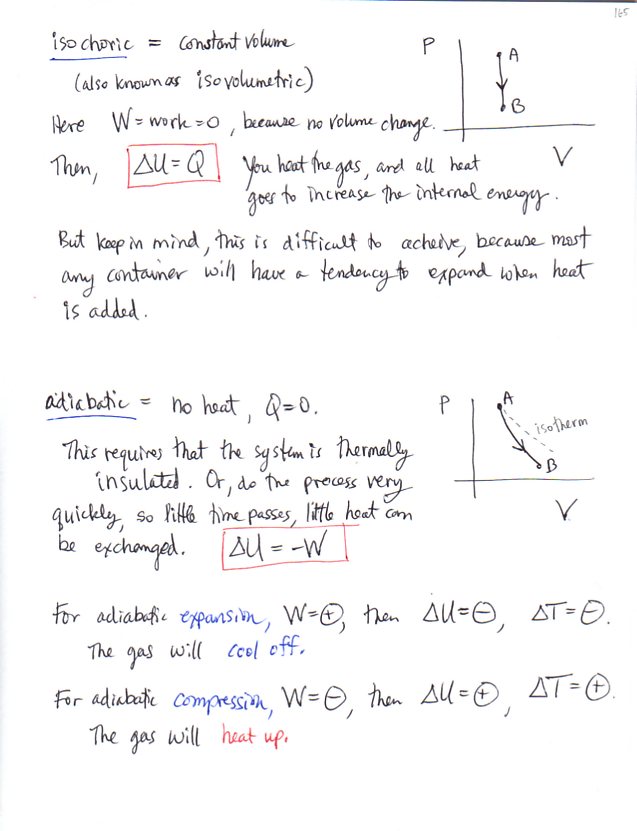 165
isochoric = constant volume
(also known as isovolumetric)
Here W = work = 0, because no volume change.
P
A
B
V
Then, ΔU = Q You heat the gas, and all heat
goes to increase the internal energy.
But keep in mind, this is difficult to acheive, because most
any container will have a tendency to expand when heat
is added.
adiabatic = no heat, Q=0.
P
A
isotherm
B
V
This requires that the system is thermally
insulated. Or, do the process very
quickly, so little time passes, little heat can
be exchanged. ΔU = -W
For adiabatic expansion, W=⊕, then ΔU=⊖, ΔT=⊖.
The gas will cool off.
For adiabatic compression, W=⊖, then ΔU=⊕, ΔT=⊕.
The gas will heat up.